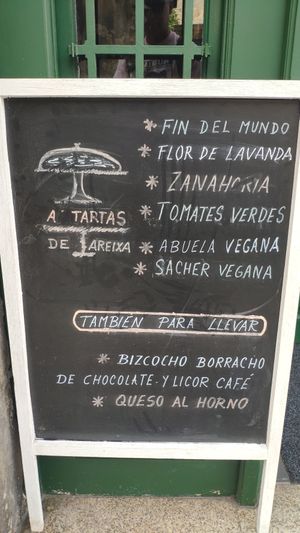 * FIN DEL MUNDO
* FLOR DE LAVANDA
* ZANAHORIA
* TOMATES VERDES
* ABUELA VEGANA
* SACHER VEGANA
AS TARTAS
DE AREIXA
TAMBIÉN PARA LLEVAR
* BIZCOCHO BORRACHO
DE CHOCOLATE Y LICOR CAFÉ
* QUESO AL HORNO